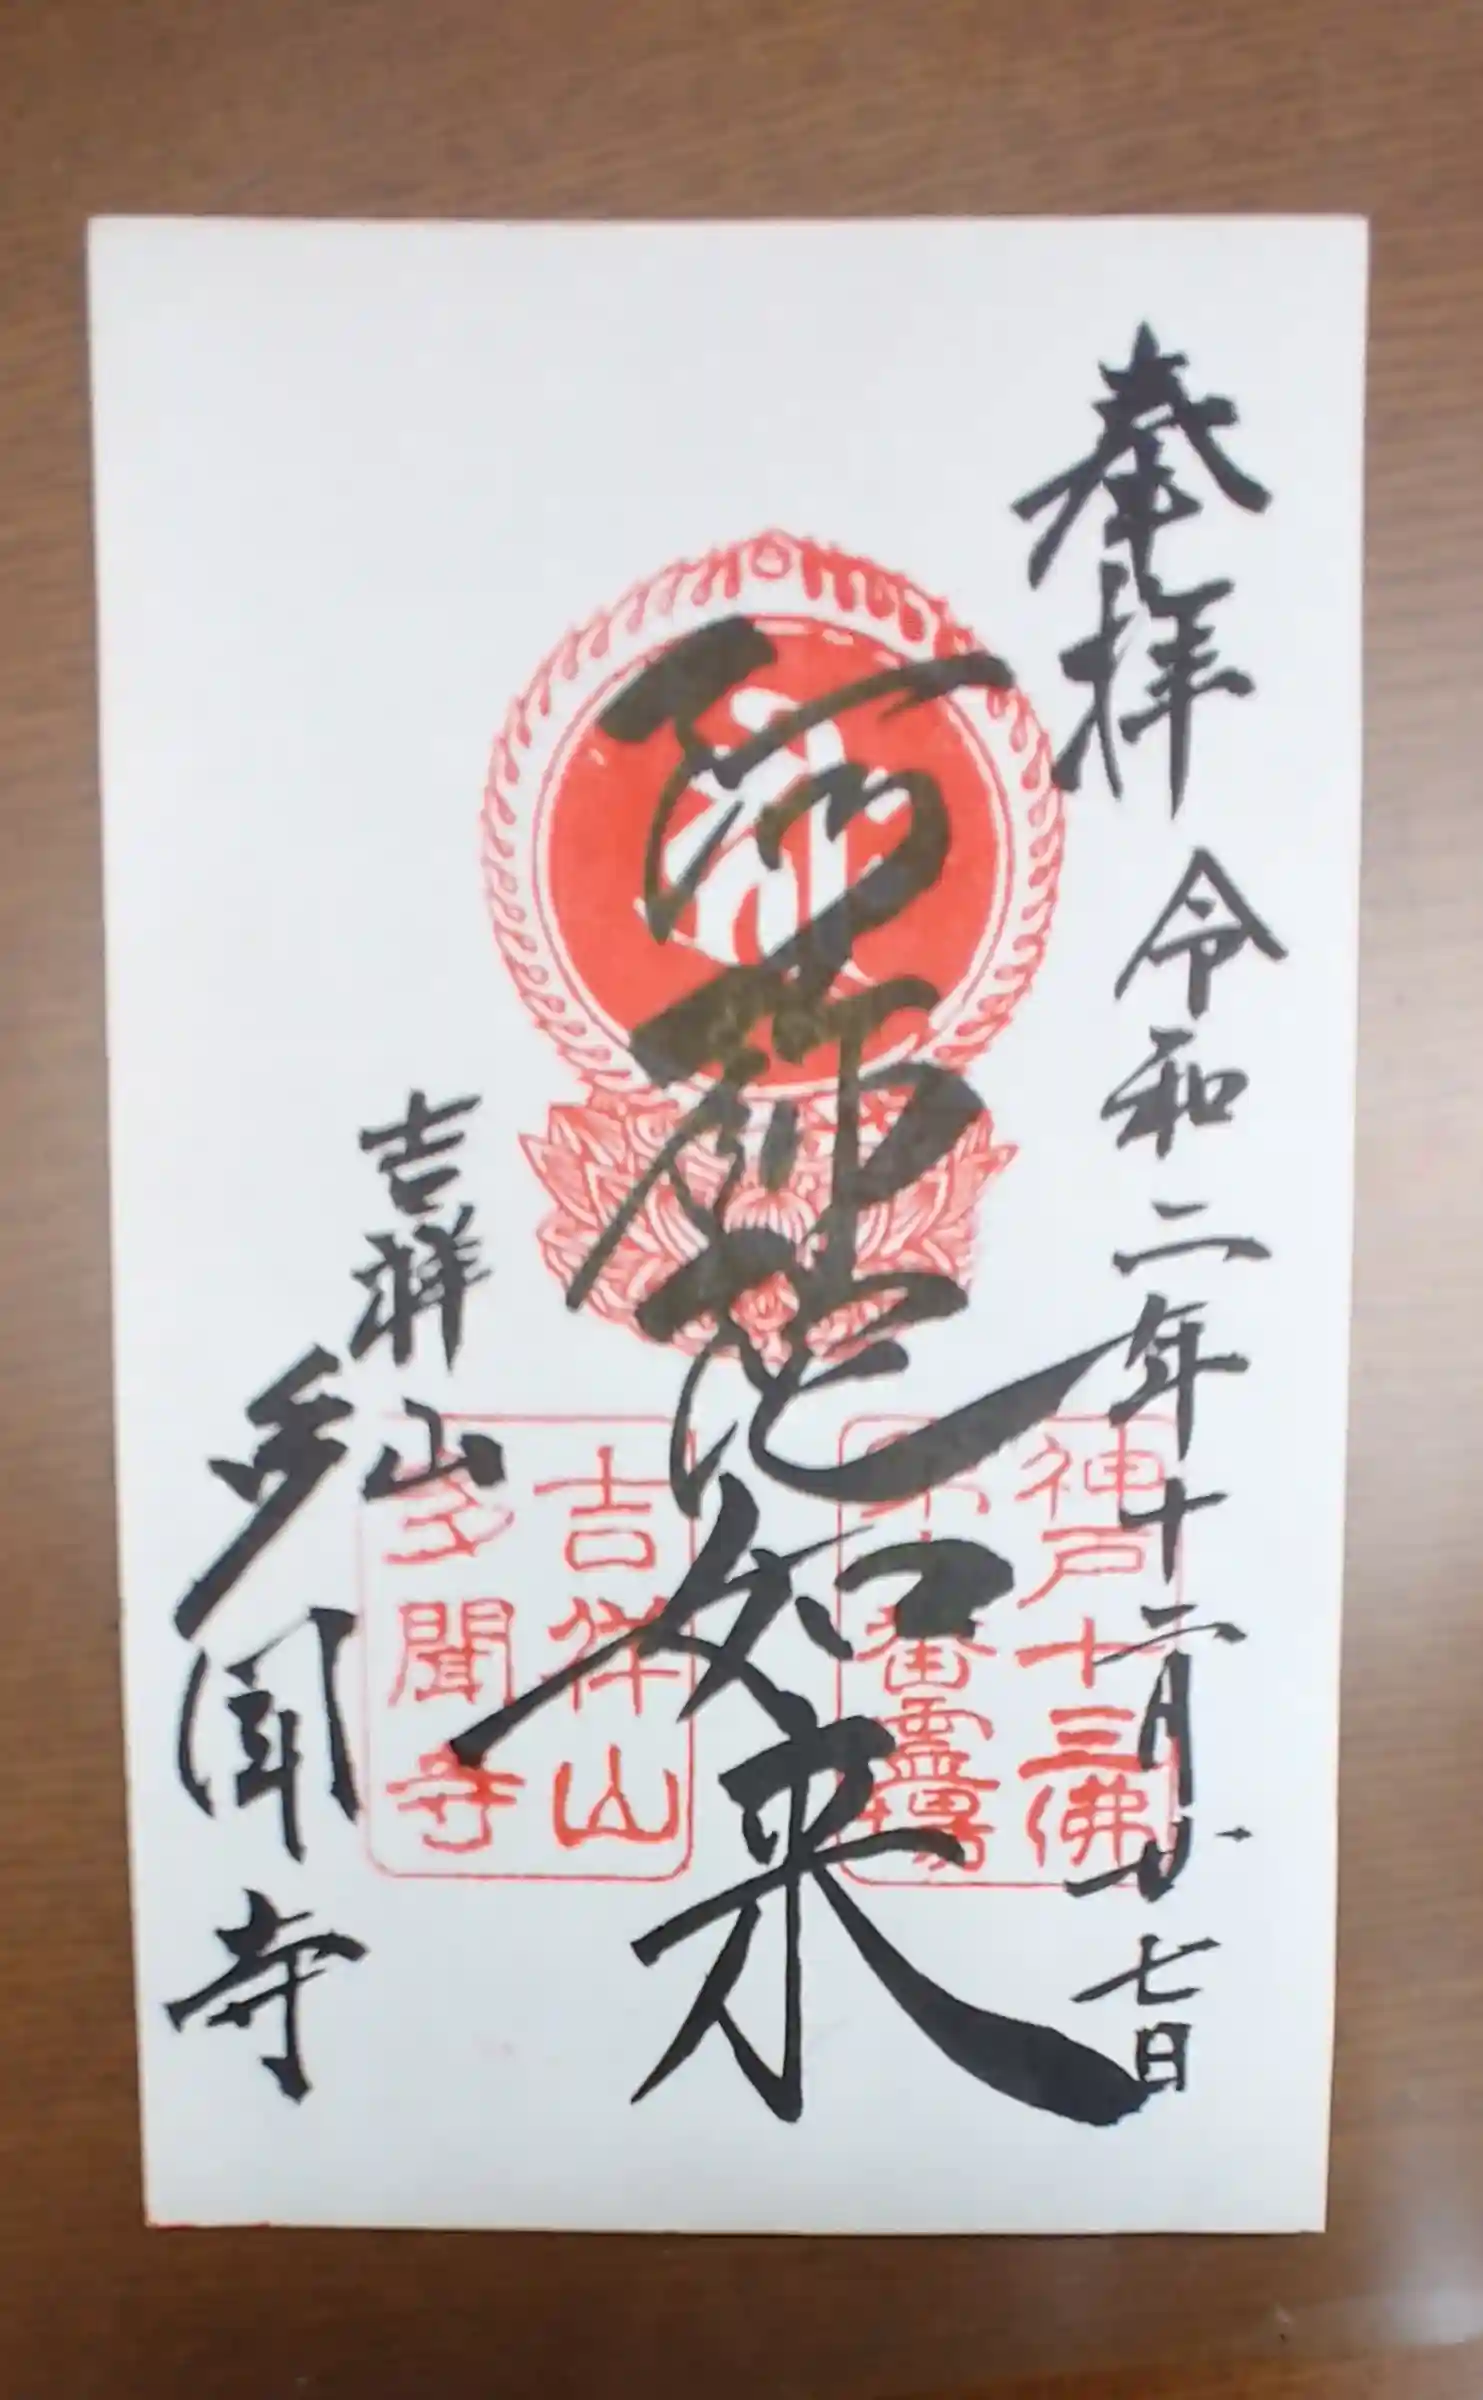 奉拝 令和二年十二月廿七日
阿弥陀如来
吉祥山
多聞寺
神戸十三佛
番霊場
吉祥山
多聞寺